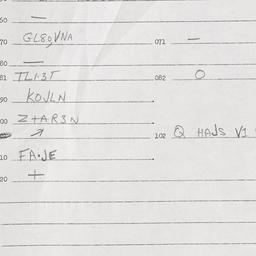 60 —
70 GL89VNA 071 —
80 —
81 TL1·3T 082 O
90 KOJLN
00 Z+AR3N
↗ 102 Q HAJS V1
10 FA·JE
20 +